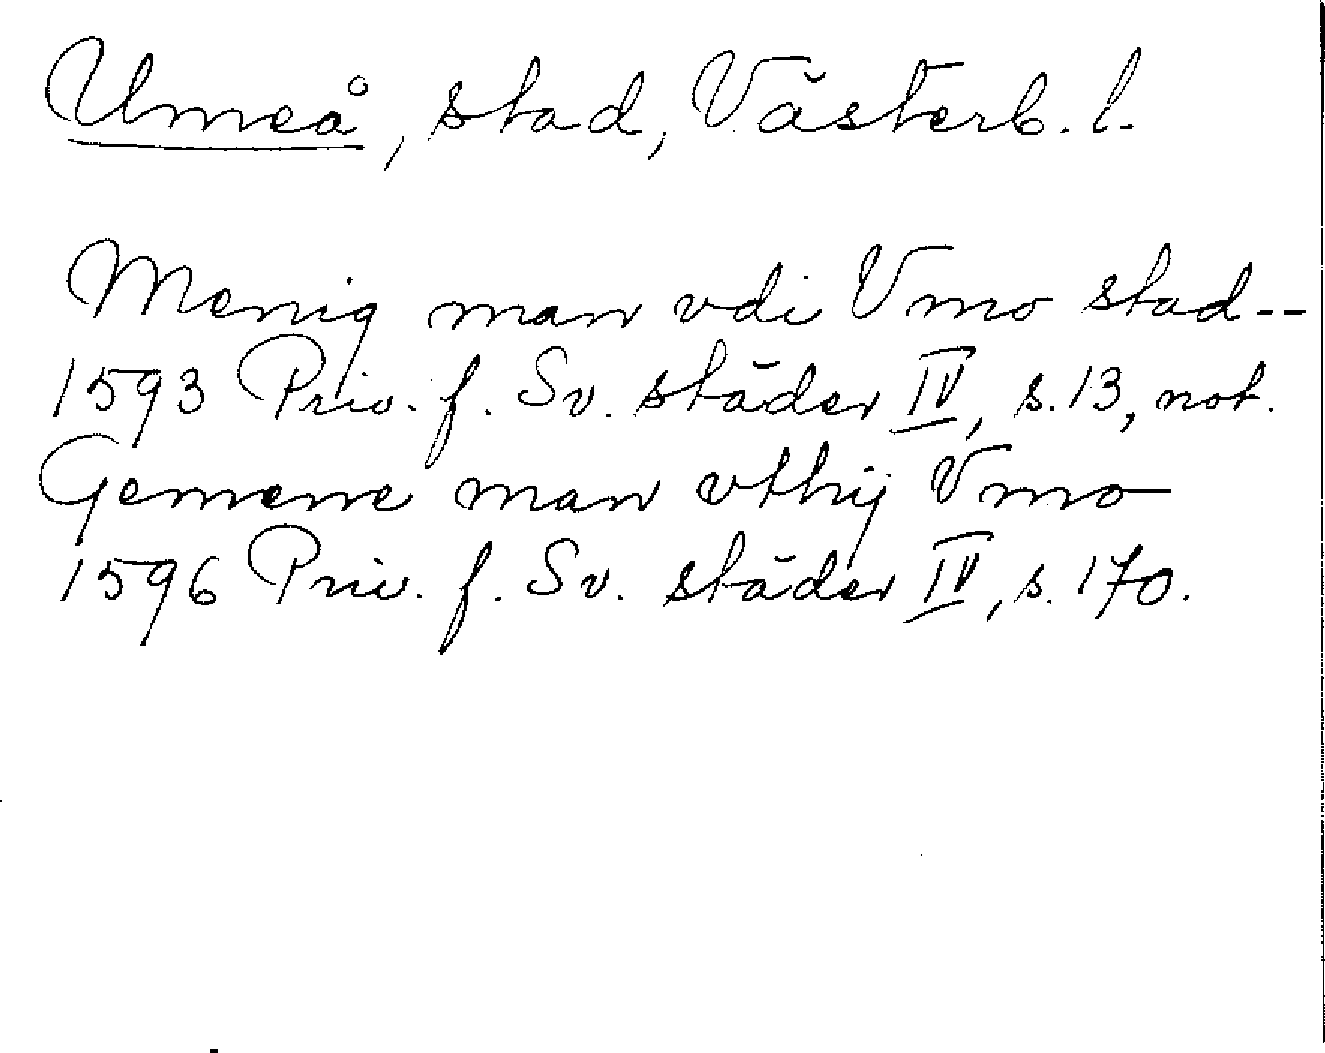 Umeå, stad, Västerb. l.
Menig man vdi Vmo stad--
1593 Priv. f. Sv. städer IV, s. 13, not.
Gemene man vthij Vmo
1596 Priv. f. Sv. städer IV, s. 170.